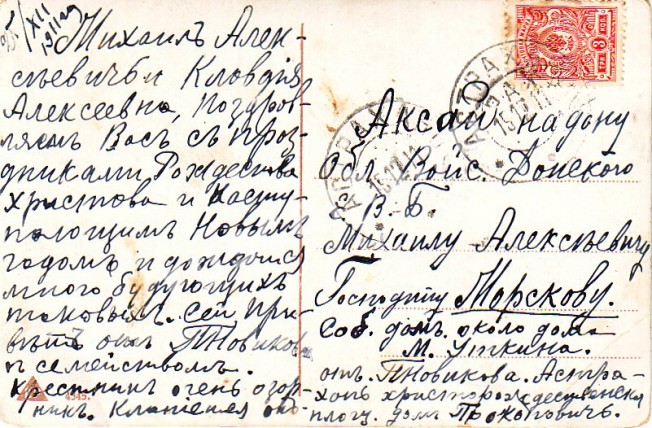 25/XII
1911 год
Михаилъ Алек-
сѣевичъ и Кловдія
Алексеевна, Поздров-
ляемъ Васъ съ праз-
дниками Рождества
Христова и Насту-
пающимъ Новымъ
годомъ и
много будующихъ
таковыхъ. сей При-
вѣтъ отъ ПНовикова
и семействомъ.
Крестникъ очень
Кланіемся
4949.
3 КОП.
АСТРАХАНЬ
15.12.11
Аксай на дону
Обл. Войс. Донского
В.-Б.
Михаилу Алексѣевичу
Господину Морскову.
Соб. домъ. около дома
М. Уткина.
отъ. ПНовикова. Астра-
хань христорождественска
площ. домъ Прокоповичъ.